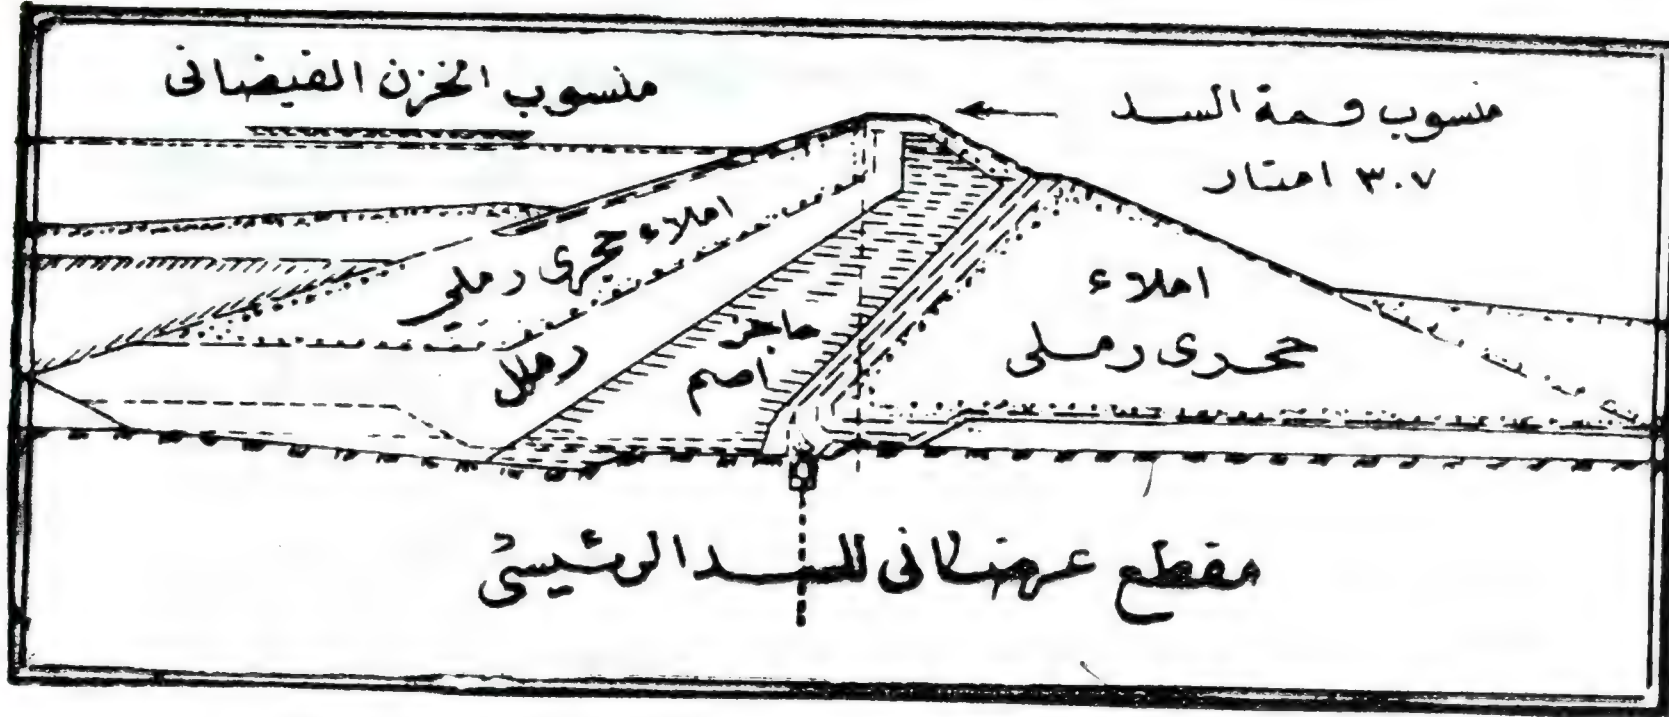 منسوب الخزن الفيضانى
منسوب قمة السد
٣٠٧ امتار
املاء حجرى رملي
رمل
حاجز
اصم
املاء
حجرى رملى
مقطع عرضانى للسد الرئيسي